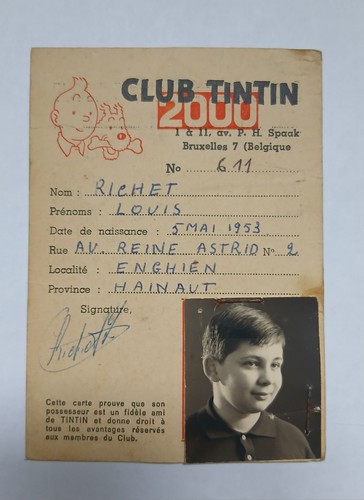 CLUB TINTIN
2000
1 à 11, av. P. H. Spaak
Bruxelles 7 (Belgique
No 611
Nom : RICHET
Prénoms : LOUIS
Date de naissance : 5 MAI 1953
Rue AV. REINE ASTRID No 2
Localité : ENGHIEN
Province : HAINAUT
Signature,
Richet
Cette carte prouve que son
possesseur est un fidèle ami
de TINTIN et donne droit à
tous les avantages réservés
aux membres du Club.